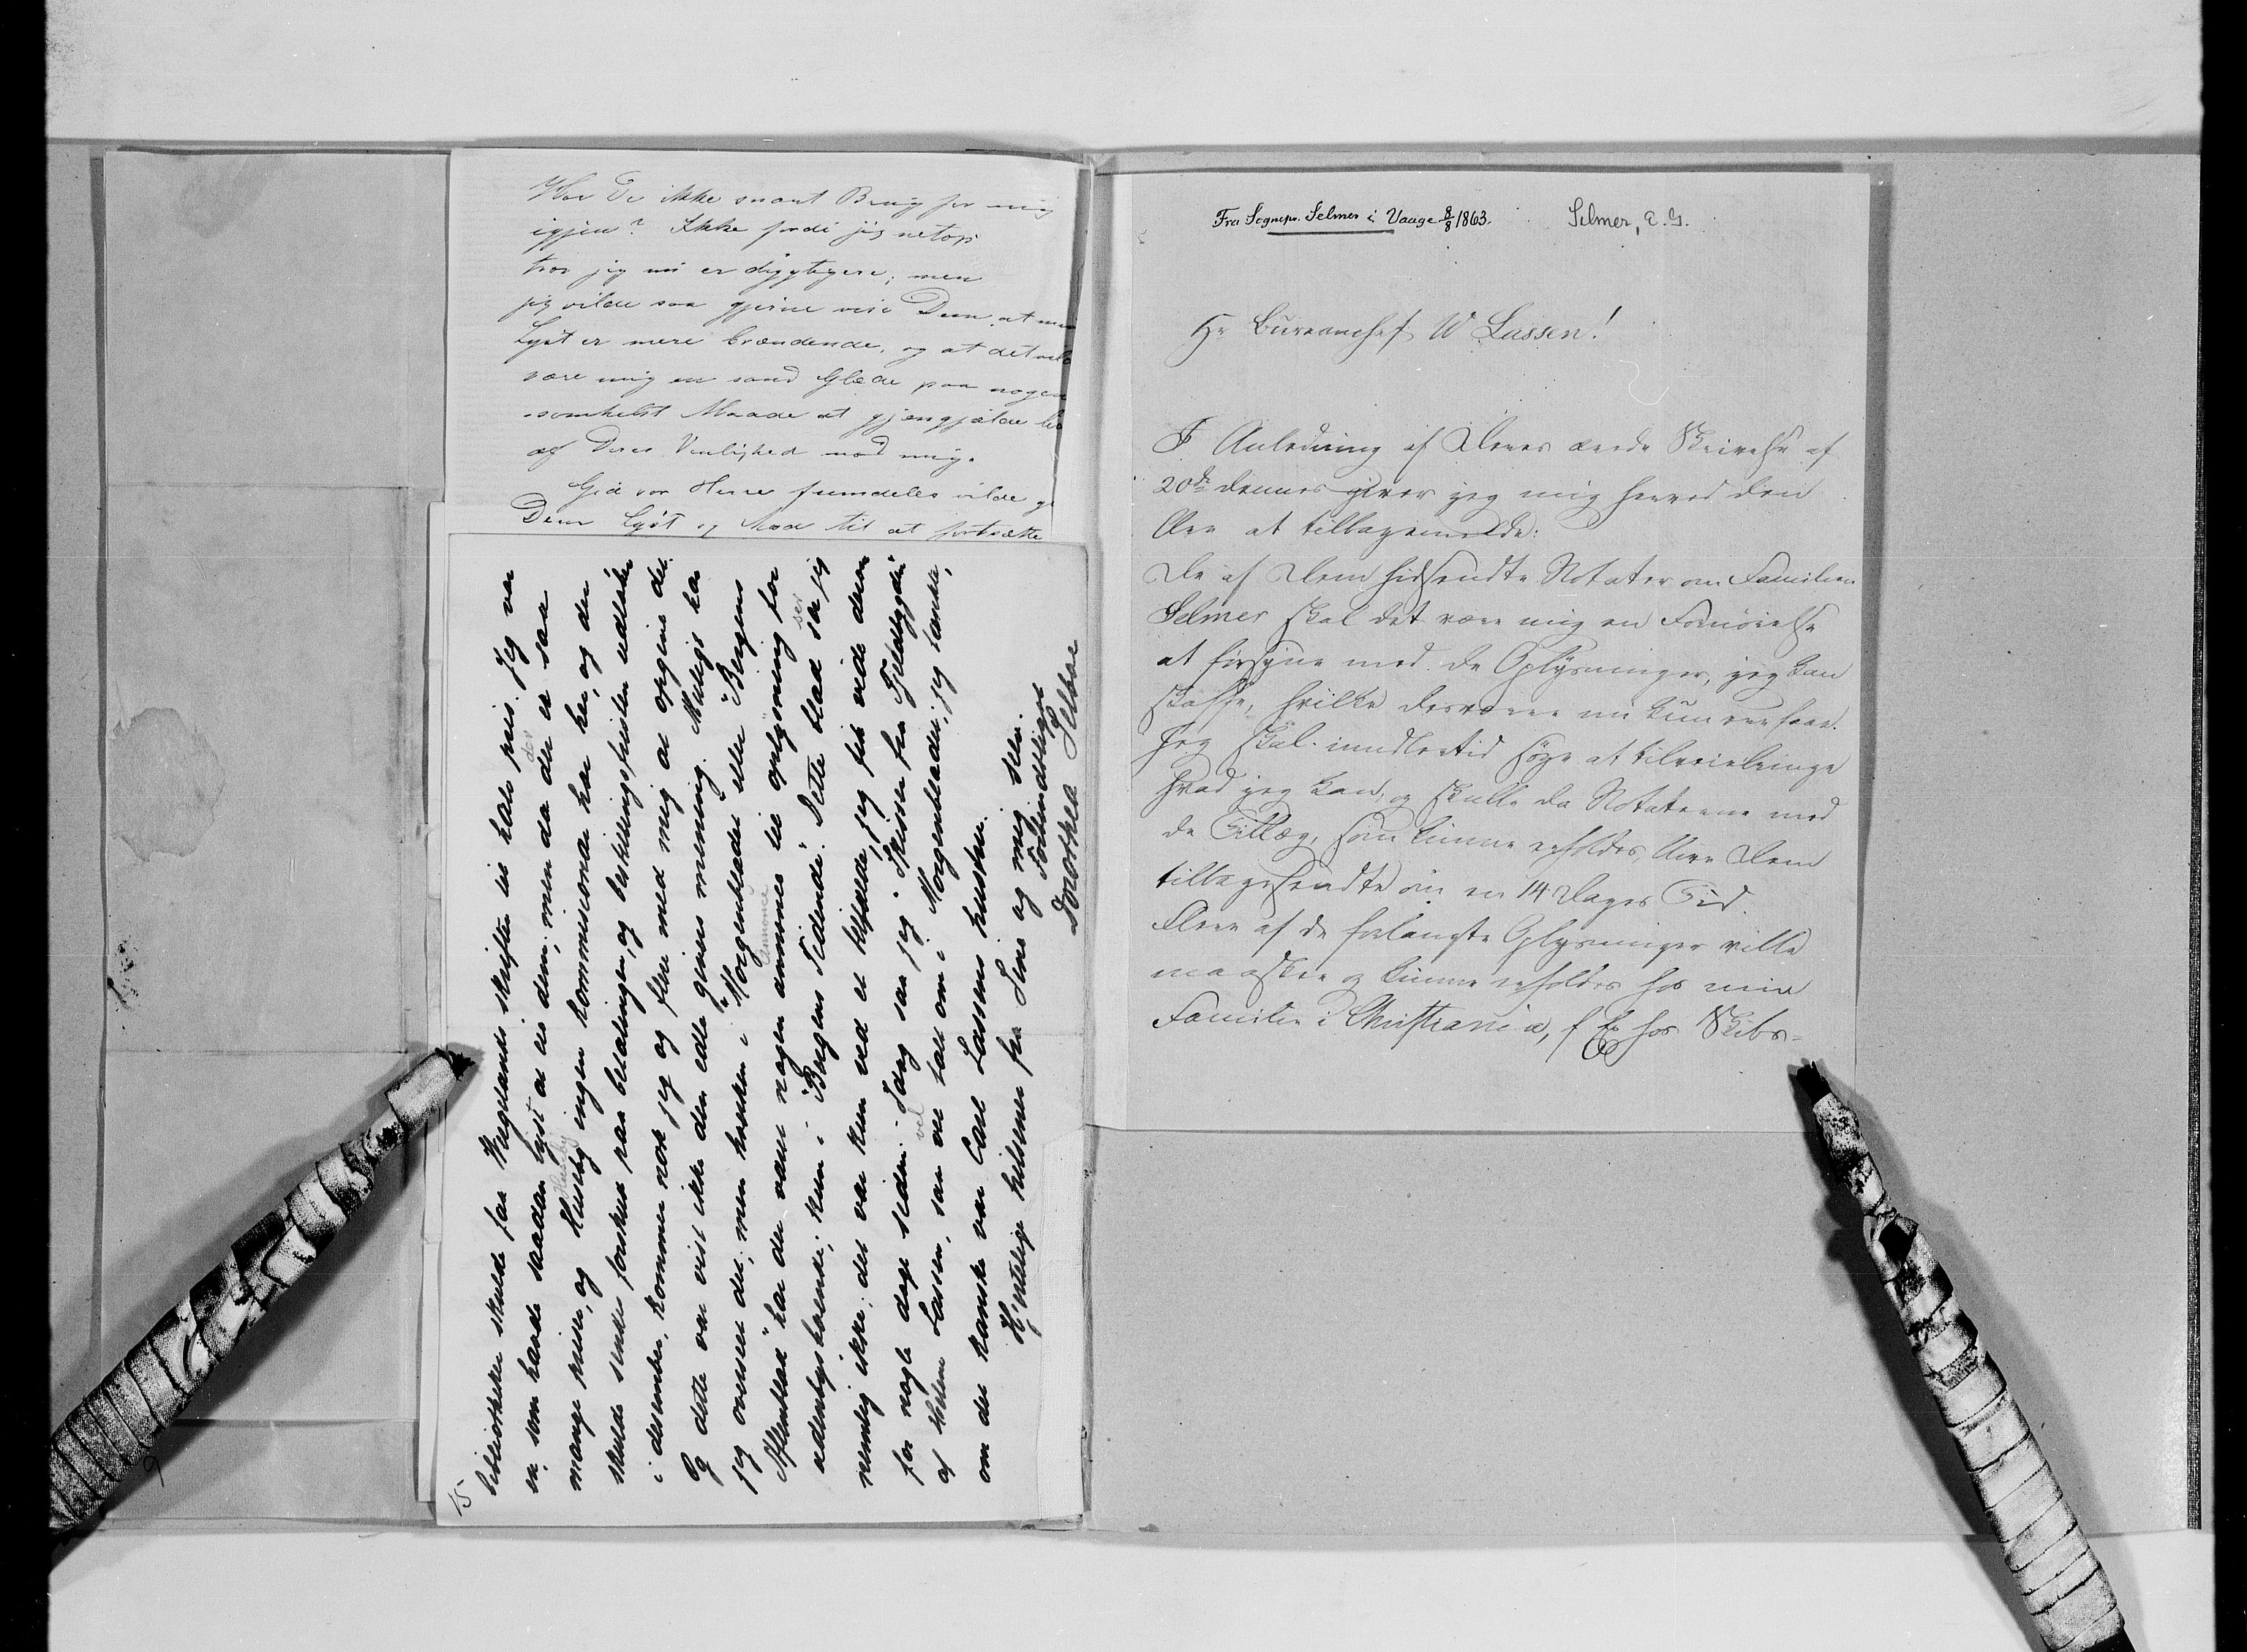 Har De ikke snart Brug for mig
igjen? Ikke fordi jeg netop
tror jeg nu er dygtigere; men
jeg vilde saa gjerne vise Dem, at min
Lyst er mere brændende, og at det vild
være mig en sand Glæde paa nogen
somhelst Maade at gjengjælde lid
af Deres Venlighed mod mig.
Gid vor Herre fremdeles vilde gi
Dem Lyst og Mod til at fortsætte
15
bibliotheker skulde faa Wergelands skrifter til halv pris. Jeg ved
en, som havde saadan lyst at eie dem; men da der er saa
der
mange priser, og Huseby ingen kommissionær har her, og der
Huseby
skulde sendes forskud paa betalingen, og bestillingsfristen udløber
i desember, kommer nok jeg og flere med mig at opgive det.
Og dette var vist ikke den edle givers mening. Muligt har
jeg overseet det; men hverken i "Morgenbladet" eller "Bergens
Aftenblad" har der været nogen annonce til oplysning for
Annonce
udenbysboende; kun i "Bergens Tidende". Dette blad ser jeg
ser
nemlig ikke; det var kun ved et tilfælde, jeg fik vide derom
for nogle dage siden. Idag saa jeg "Skisser fra Fjeldbygden"
af Helene Lassen, saa vel talt om i Morgenbladet; jeg tænkte,
vel
om det kanske var Carl Lassens hustru.
Hjertelige hilsener fra Sine og mig selv.
Forbindtligst
Dorothea Selboe
Fra Sognepr. Selmer i Vaage 8/8 1863.
Selmer, E. G.
Hr Bureauchef W Lassen!
I Anledning af Deres ærede Skrivelse af
20de dennes giver jeg mig herved den
Ære at tilbagemelde:
De af Dem hidsendte Notater om Familien
Selmer skal det være mig en Fornøielse
at forsyne med de Oplysninger, jeg kan
skaffe, hvilke desværre nu kun ere faae.
Jeg skal imidlertid søge at tilveiebringe
hvad jeg kan, og skulle da Notaterne med
de Tillæg, som kunne erholdes, blive Dem
tilbagesendte om en 14 Dages Tid.
Flere af de forlangte Oplysninger ville
maaskee og kunne erholdes hos min
Familie i Christiania, f Ex hos Skibs-